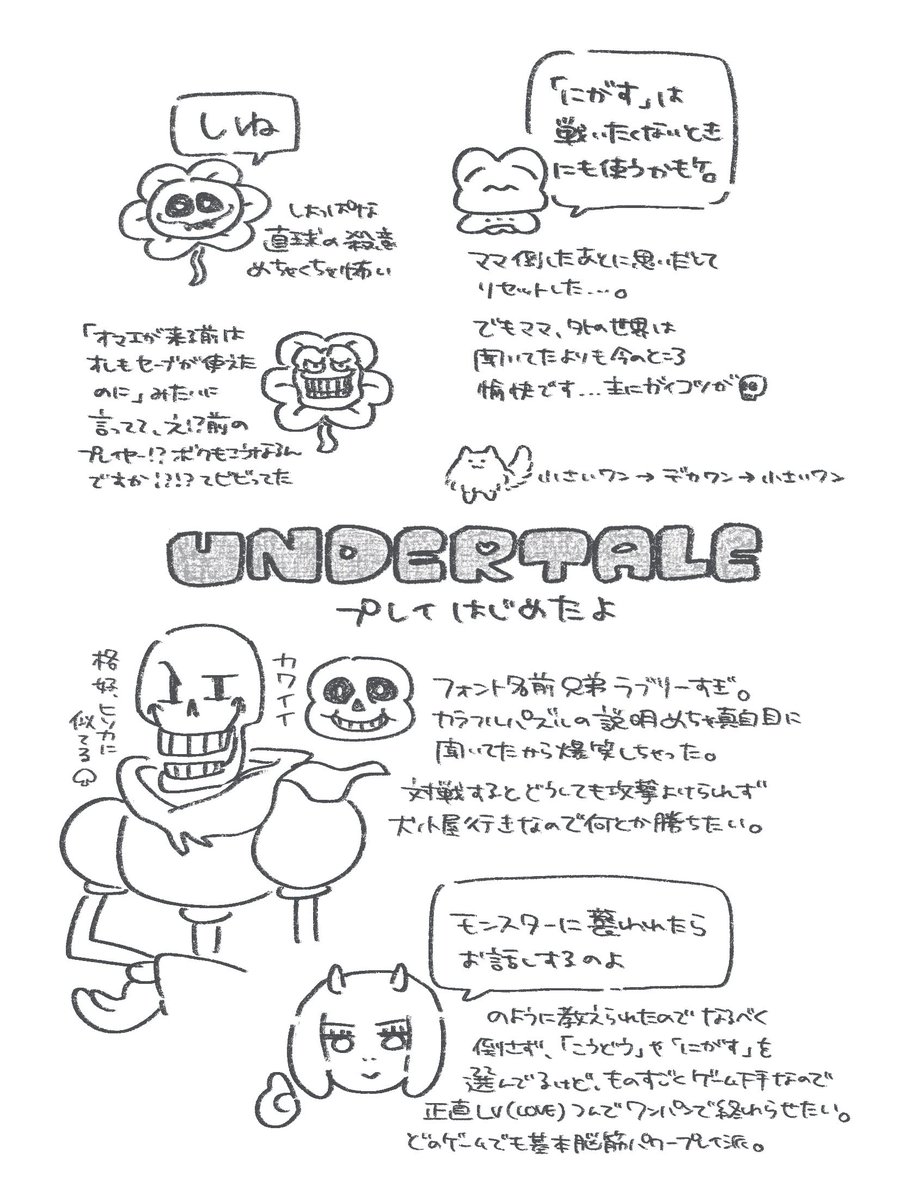 しね
しょっぱな
直球の殺意
めちゃくちゃ怖い
「にがす」は
戦いたくないとき
にも使うかもケ。
ママ倒したあとに思いだして
リセットした…。
でもママ、外の世界は
聞いてたよりも今のところ
愉快です…主にガイコツが
「オマエが来る前は
オレもセーブが使えた
のに」みたいに
言ってて、え!?前の
プレイヤー!?ボクもこうなるん
ですか!?!?てビビってた
小さいワン→デカワン→小さいワン
UNDERTALE
プレイはじめたよ
格好、ヒソカに
似てる♤
カワイイ
フォント名前兄弟ラブリーすぎ。
カラフルパズルの説明めちゃ真面目に
聞いてたから爆笑しちゃった。
対戦するとどうしても攻撃よけられず
犬小屋行きなので何とか勝ちたい。
モンスターに襲われたら
お話しするのよ
のように教えられたのでなるべく
倒さず、「こうどう」や「にがす」を
選んでるけど、ものすごくゲーム下手なので
正直LV(LOVE)つんでワンパンで終わらせたい。
どのゲームでも基本脳筋パワープレイ派。